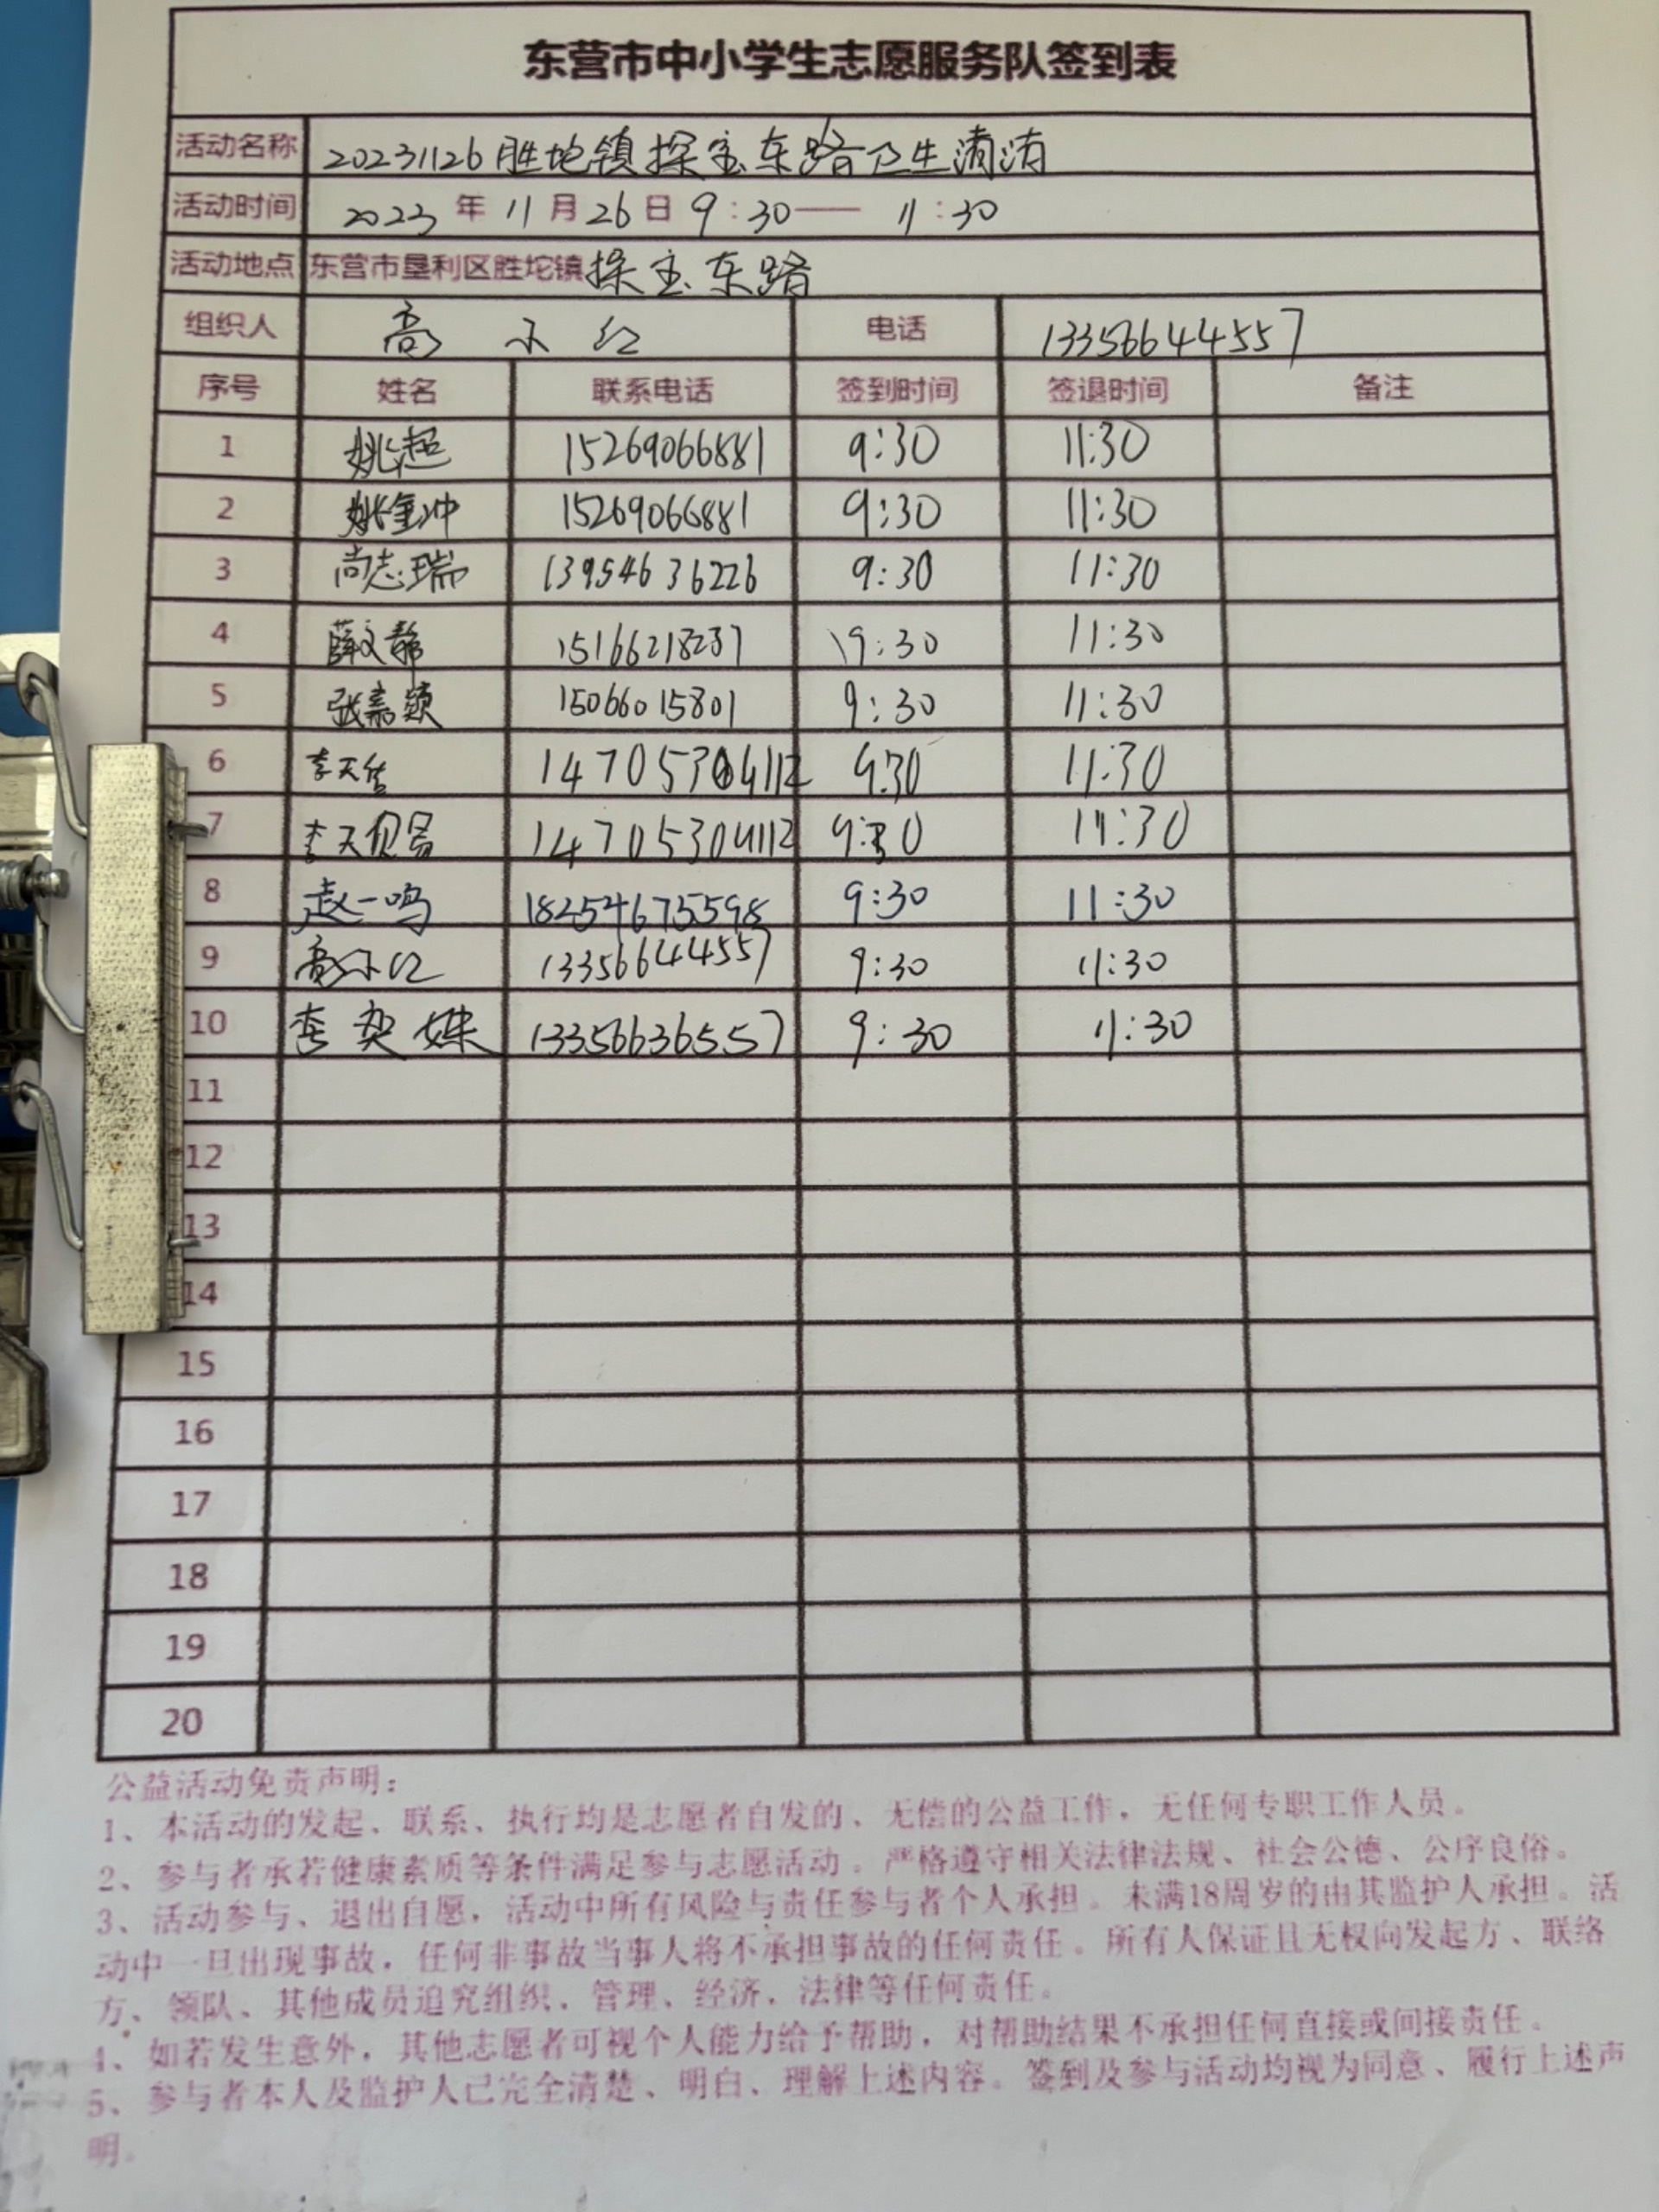 东营市中小学生志愿服务队签到表
活动名称 20231126胜坨镇探宝东路卫生清洁
活动时间 2023年11月26日9:30——11:30
活动地点 东营市垦利区胜坨镇探宝东路
组织人 高 红 电话 13356644557
序号 姓名 联系电话 签到时间 签退时间 备注
1 姚超 15269066881 9:30 11:30
2 姚金冲 15269066881 9:30 11:30
3 尚志瑞 13954636226 9:30 11:30
4 薛文静 15166218237 9:30 11:30
5 张嘉颖 15066015801 9:30 11:30
6 李天佑 14705304112 9:30 11:30
7 李天贶 14705304112 9:30 11:30
8 赵一鸣 18254675598 9:30 11:30
9 高 红 13356644557 9:30 11:30
10 李奕姝 13356636557 9:30 11:30
11
12
13
14
15
16
17
18
19
20
公益活动免责声明：
1、本活动的发起、联系、执行均是志愿者自发的、无偿的公益工作，无任何专职工作人员。
2、参与者承若健康素质等条件满足参与志愿活动。严格遵守相关法律法规、社会公德、公序良俗。
3、活动参与、退出自愿，活动中所有风险与责任参与者个人承担。未满18周岁的由其监护人承担。活
动中一旦出现事故，任何非事故当事人将不承担事故的任何责任。所有人保证且无权向发起方、联络
方、领队、其他成员追究组织、管理、经济，法律等任何责任。
4、如若发生意外，其他志愿者可视个人能力给予帮助，对帮助结果不承担任何直接或间接责任。
5、参与者本人及监护人已完全清楚、明白、理解上述内容。签到及参与活动均视为同意、履行上述声
明。